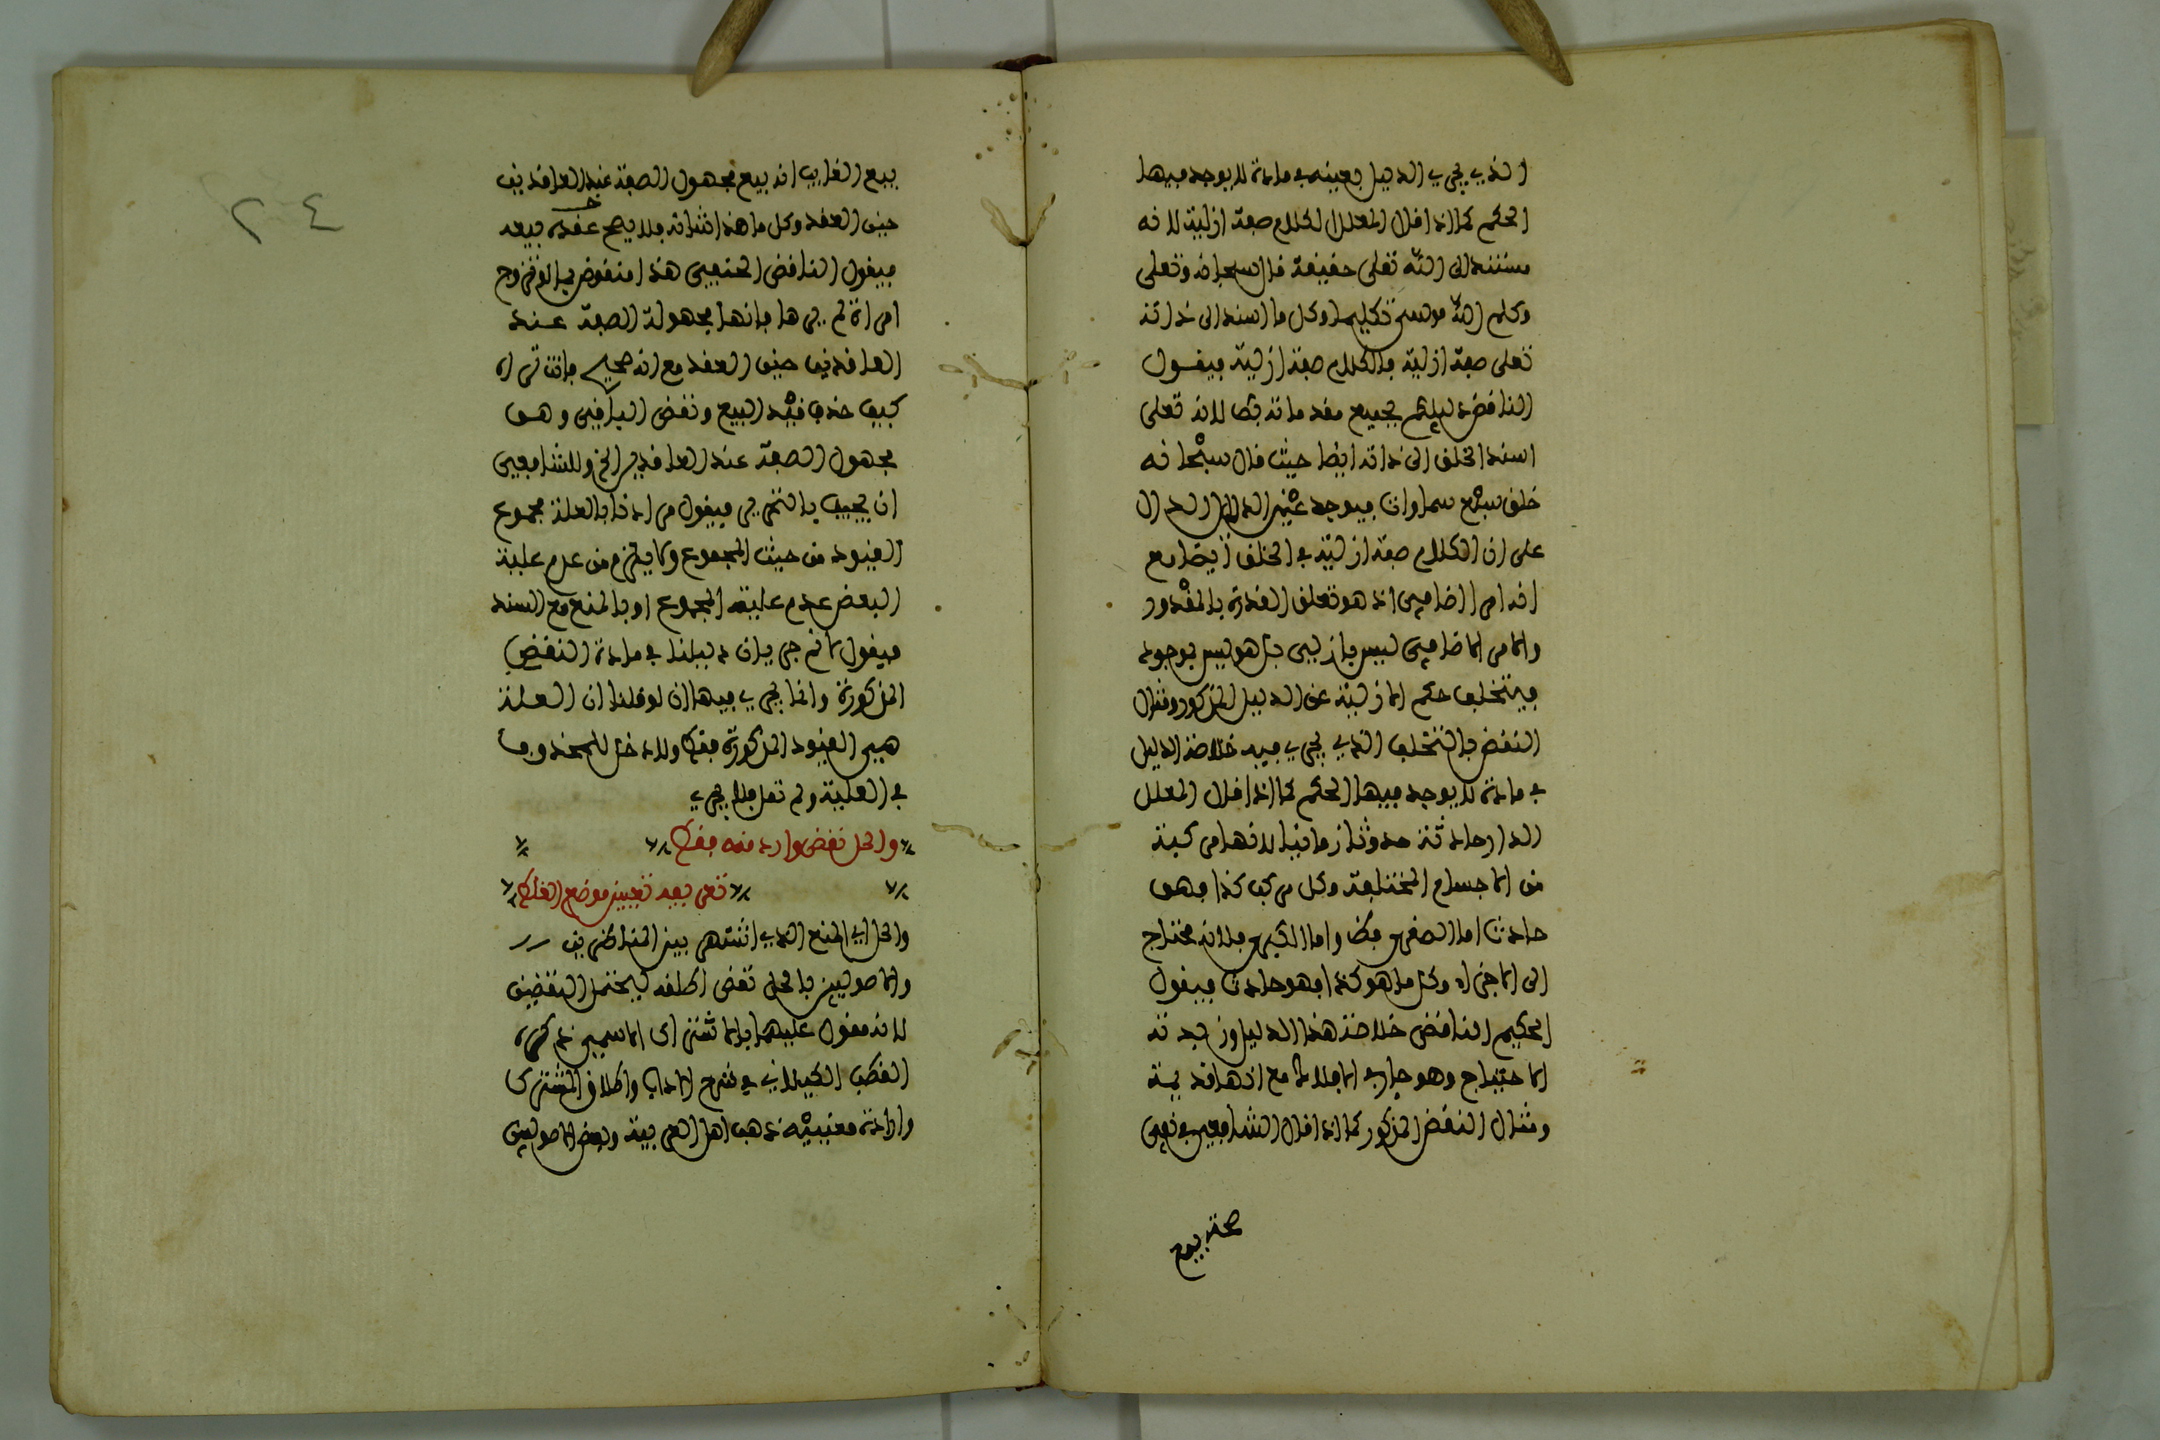 الذي يجري الدليل بعينه في مادة لا يوجد فيها
الحكم كما اذا قال المعلل الكلام صفة ازلية لانه
مستند الى الله تعلى حقيقة قال سبحانه وتعلى
وكلم الله موسى تكليما وكل ما اسند الى ذاته
تعلى صفة ازلية فالكلام صفة ازلية فيقول
الناقض دليلكم بجميع مقدماته لانه تعلى
اسند الخلق الى ذاته ايضا حيث قال سبحانه
خلق سبع سماوات فيوجد عين الدليل الدال
على ان الكلام صفة ازلية في الخلق ايضا مع
انه امر اضافي اذ هو تعلق القدرة بالمقدور
والامر الاضافي ليس بازلي بل هو ليس بوجود
فيتخلف حكم الازلية عن الدليل المذكور ومثال
النقض بالتخلف الذي يجري فيه خلاصة الدليل
في مادة لا يوجد فيها الحكم كما اذا قال المعلل
الدار حادثة حدوثا زمانيا لانها مركبة
من الاجسام المختلفة وكل مركب كذا فهو
حادث اما الصغرى واما الكبرى فلانه محتاج
الى الاجزاء وكل ما هو كذا فهو حادث فيقول
الحكيم الناقض خلاصة هذا الدليل وزبدته
الاحتياج وهو جار في الافلاك مع انها قديمة
ومثال النقض المذكور كما اذا قال الشافعي في نفي
صحة بيع
٢٤
بيع الغايب انه بيع مجهول الصفة عند العاقدين
حين العقد وكل ما هذا شانه فلا يصح عقده بيعه
فيقول الناقض الحنفي هذا منقوض بما لو تزوج
امراة لم يرها فانها مجهولة الصفة عند
العاقدين حين العقد مع انه صحيح فانت تراه
كيف حذف قيد البيع ونقض الباقي وهو
مجهول الصفة عند العاقدين الخ وللشافعي
ان يجيب بالتحرير فيقول مرادنا بالعلة مجموع
القيود من حيث المجموع ولا يلزم من عدم علية
البعض عدم علية المجموع او بالمنع مع السند
فيقول لا نم جريان دليلنا في مادة النقض
المذكورة وانما يجري فيها ان لو قلنا ان العلة
هي القيود المذكورة فقط ولا دخل للمحذوف
في العلية ولم نقل فلا يجري
والحل نقض وارد منه فقط
نعم بعد تعيين موضع الغلط
والحل اي المنع الذي اشتهر بين المناظرين
والاصوليين بالحل نقض اطلقه ليحتمل النقضين
لانه مقول عليهما بالاشتراك الاسمي ذكره
القطب الكيلاني في شرح الاداب واطلاق المشترك
وارادة معنييه مذهب اهل العربية وبعض الاصوليين